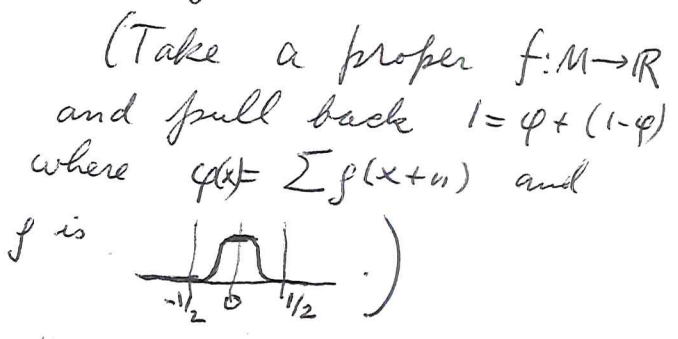 (Take a proper f: M→ℝ
and pull back 1 = φ + (1-φ)
where φ(x) = Σ ρ(x+n) and
ρ is
-1/2 0 1/2 .)